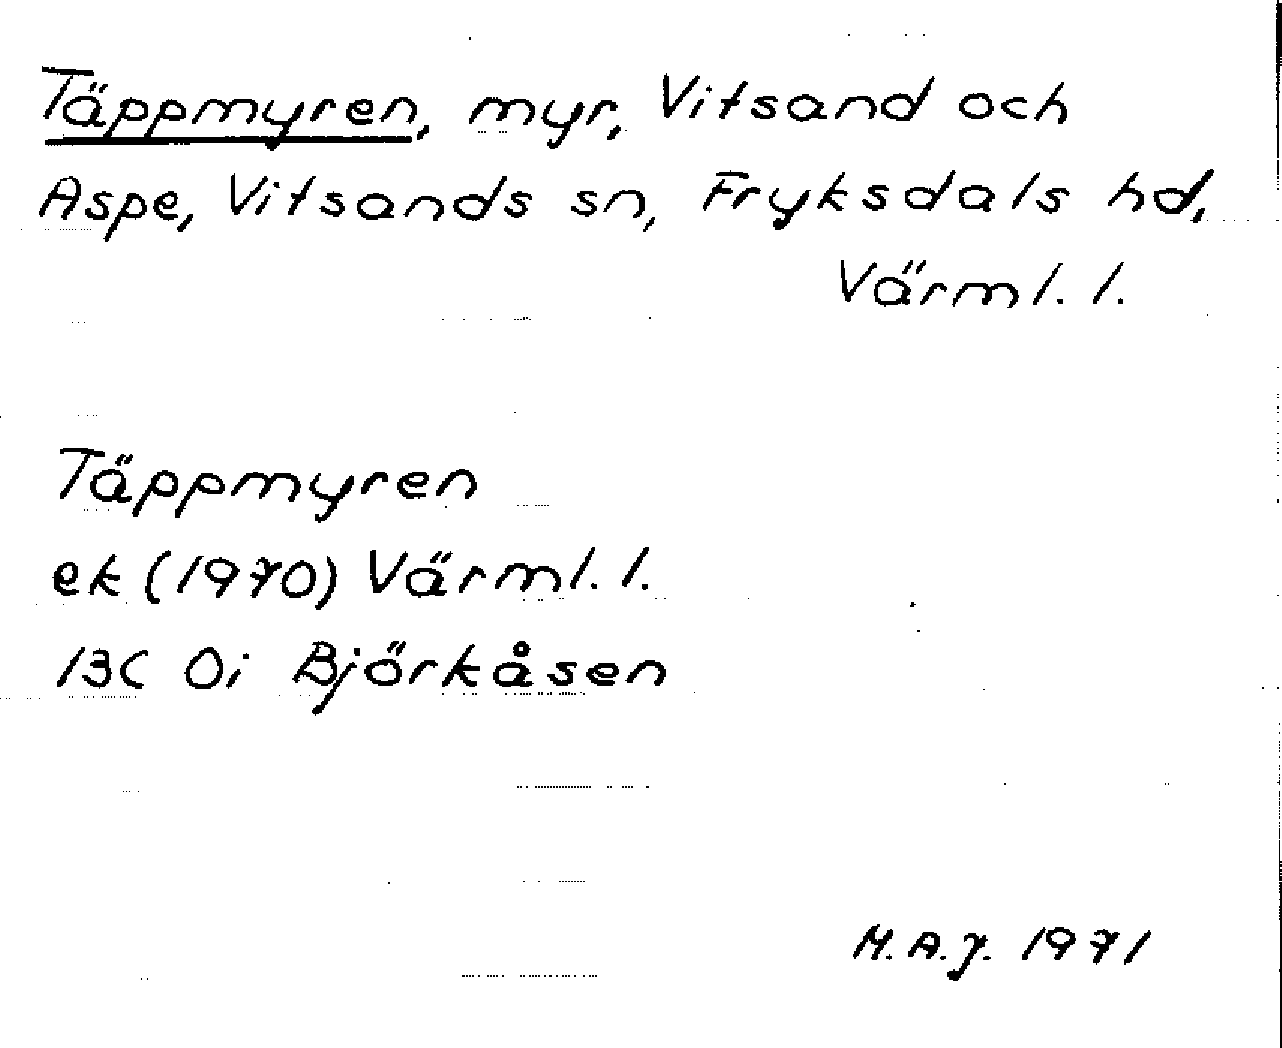 Täppmyren, myr, Vitsand och
Aspe, Vitsands sn, Fryksdals hd,
Värml. l.
Täppmyren
ek (1970) Värml. l.
13C 0i Björkåsen
M.A.J. 1971